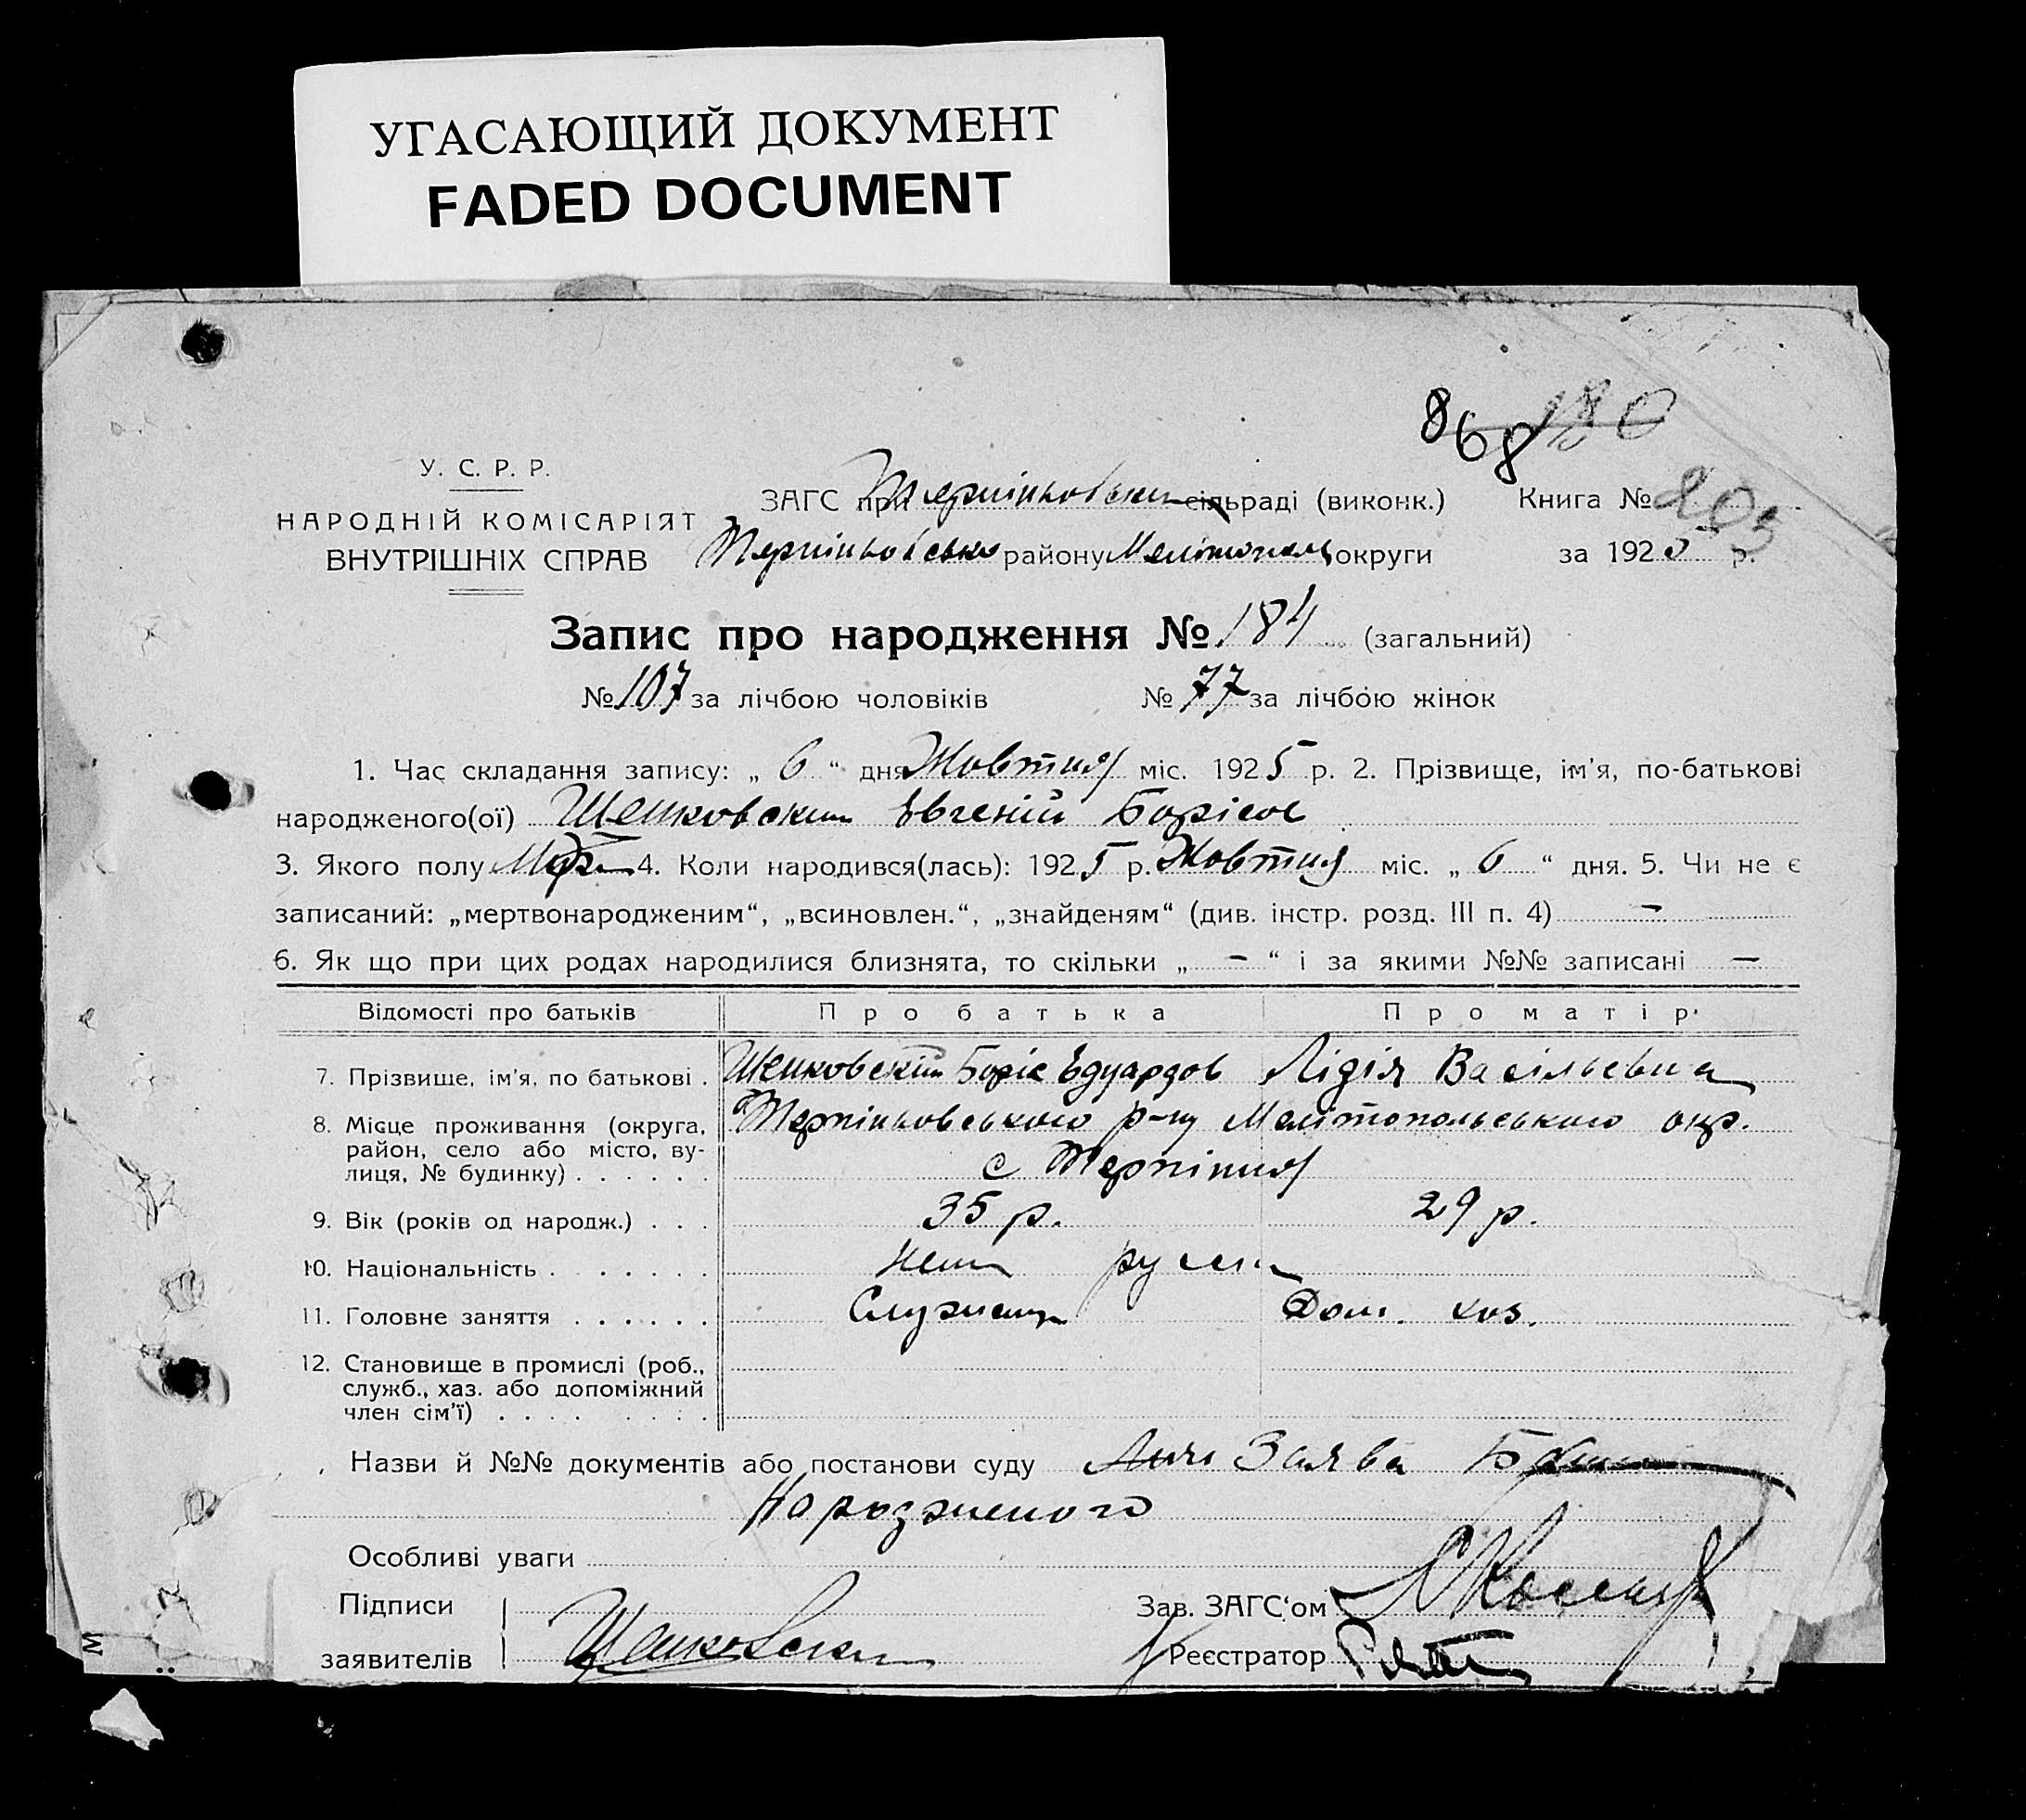 УГАСАЮЩИЙ ДОКУМЕНТ
FADED DOCUMENT
868 180
203
У. С. Р. Р.
НАРОДНІЙ КОМІСАРІЯТ
ВНУТРІШНІХ СПРАВ
ЗАГС при сільраді (виконк.) Книга №
району Мелітопол округи за 1925 р.
Запис про народження № 184 (загальний)
№ 107 за лічбою чоловіків № 77 за лічбою жінок
1. Час складання запису: „ 6 “ дня Жовтня міс. 1925 р. 2. Прізвище, ім'я, по-батькові
народженого(ої) Евгеній Борісов
3. Якого полу 4. Коли народився(лась): 1925 р. Жовтня міс. „ 6 “ дня. 5. Чи не є
записаний: „мертвонародженим“, „всиновлен.“, „знайденям“ (див. інстр. розд. III п. 4) —
6. Як що при цих родах народилися близнята, то скільки „ — “ і за якими №№ записані —
Відомості про батьків Про батька Про матір
7. Прізвище, ім'я, по батькові . Боріс Едуардов Лідія Васільевна
8. Місце проживання (округа, Терпіньовського р-ну Мелітопольського окр.
район, село або місто, ву-
лиця, № будинку) . . . . . . с Терпіння
9. Вік (років од народж.) . . . 35 р. 29 р.
10. Національність . . . . . . .
11. Головне заняття . . . . . . Дом. хоз.
12. Становище в промислі (роб.,
служб., хаз. або допоміжний
член сім'ї) . . . . . . . .
Назви й №№ документів або постанови суду Заява
Народженого
Особливі уваги
Підписи Зав. ЗАГС'ом
заявителів Реєстратор